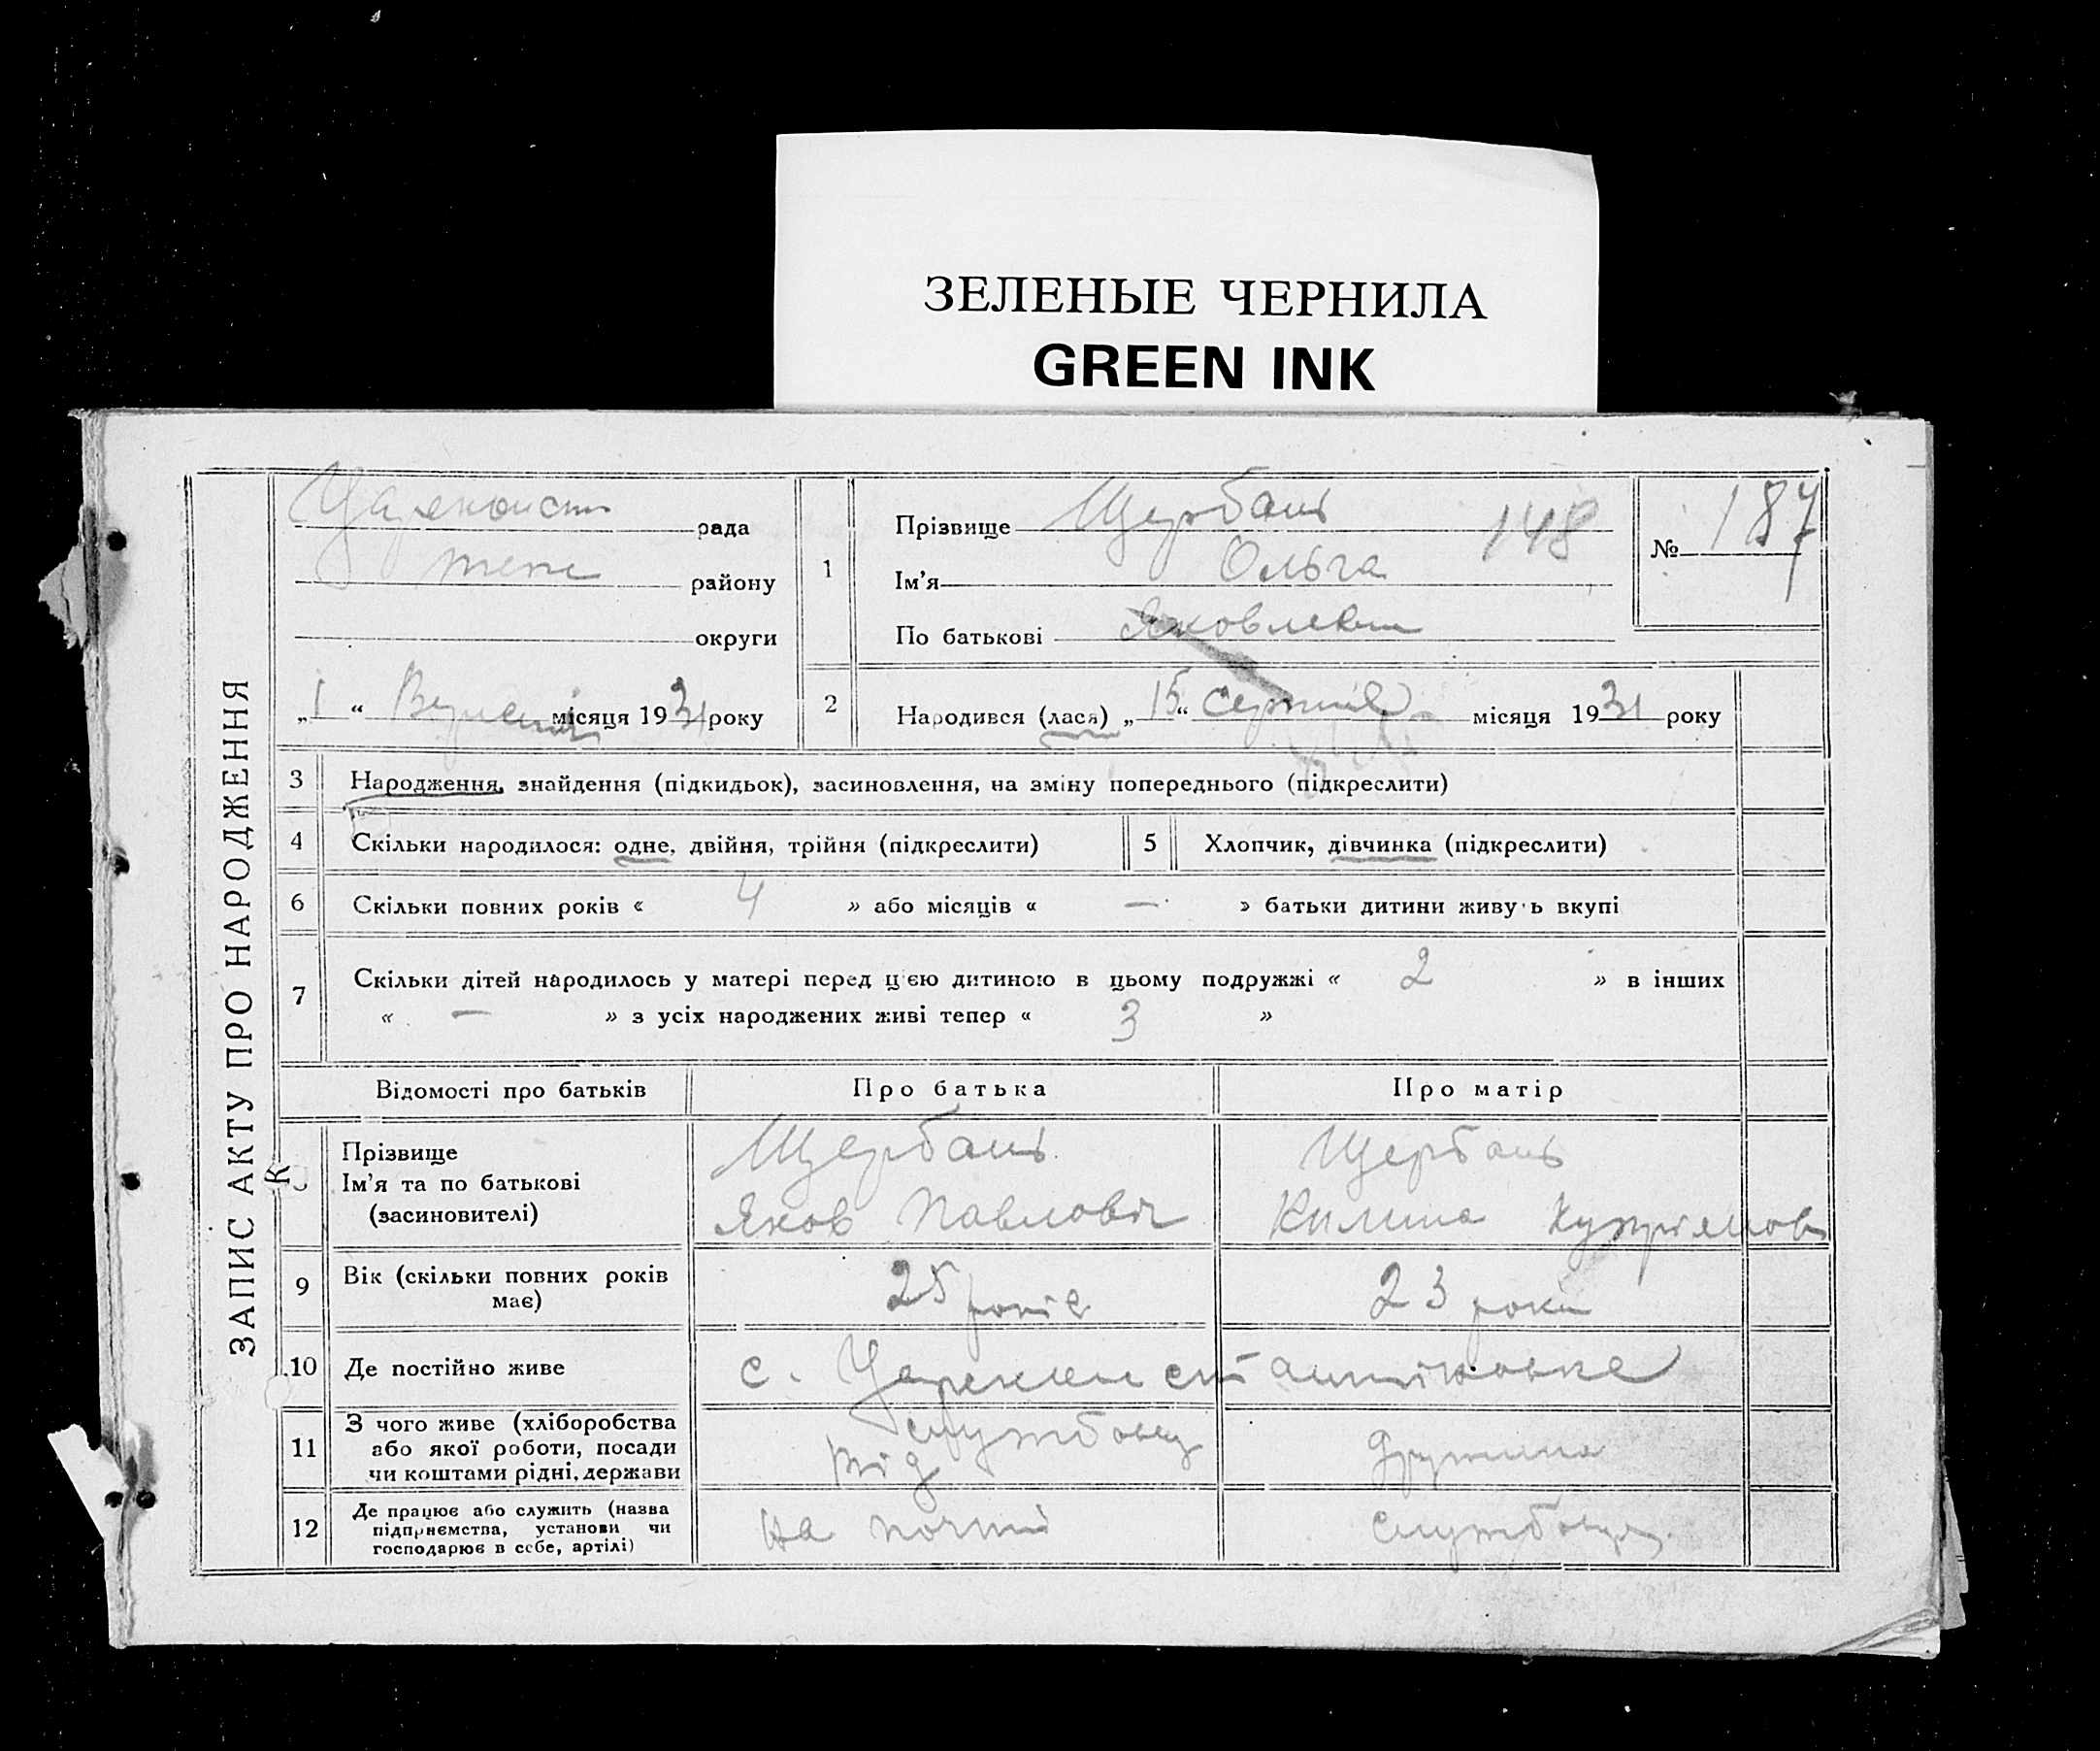 ЗЕЛЕНЫЕ ЧЕРНИЛА
GREEN INK
ЗАПИС АКТУ ПРО НАРОДЖЕННЯ
рада
району
округи
„1“ місяця 1931 року
1
Прізвище Щербань 148
Ім’я Ольга
По батькові
№ 187
2
Народився (лася) „15“ серпня місяця 1931 року
3 Народження, знайдення (підкидьок), засиновлення, на зміну попереднього (підкреслити)
4 Скільки народилося: одне, двійня, трійня (підкреслити)
5 Хлопчик, дівчинка (підкреслити)
6 Скільки повних років « 4 » або місяців « — » батьки дитини живу ь вкупі
7 Скільки дітей народилось у матері перед цією дитиною в цьому подружжі « 2 » в інших
« — » з усіх народжених живі тепер « 3 »
Відомості про батьків
Про батька
Про матір
Прізвище
Ім’я та по батькові
(засиновителі)
Щербань
Яков Павлович
Щербань
9 Вік (скільки повних років
має)
25 років
23 роки
10 Де постійно живе
с.
11 З чого живе (хліборобства
або якої роботи, посади
чи коштами рідні, держави
службовец
дружина
12 Де працює або служить (назва
підприємства, установи чи
господарює в себе, артілі)
на почті
службовця